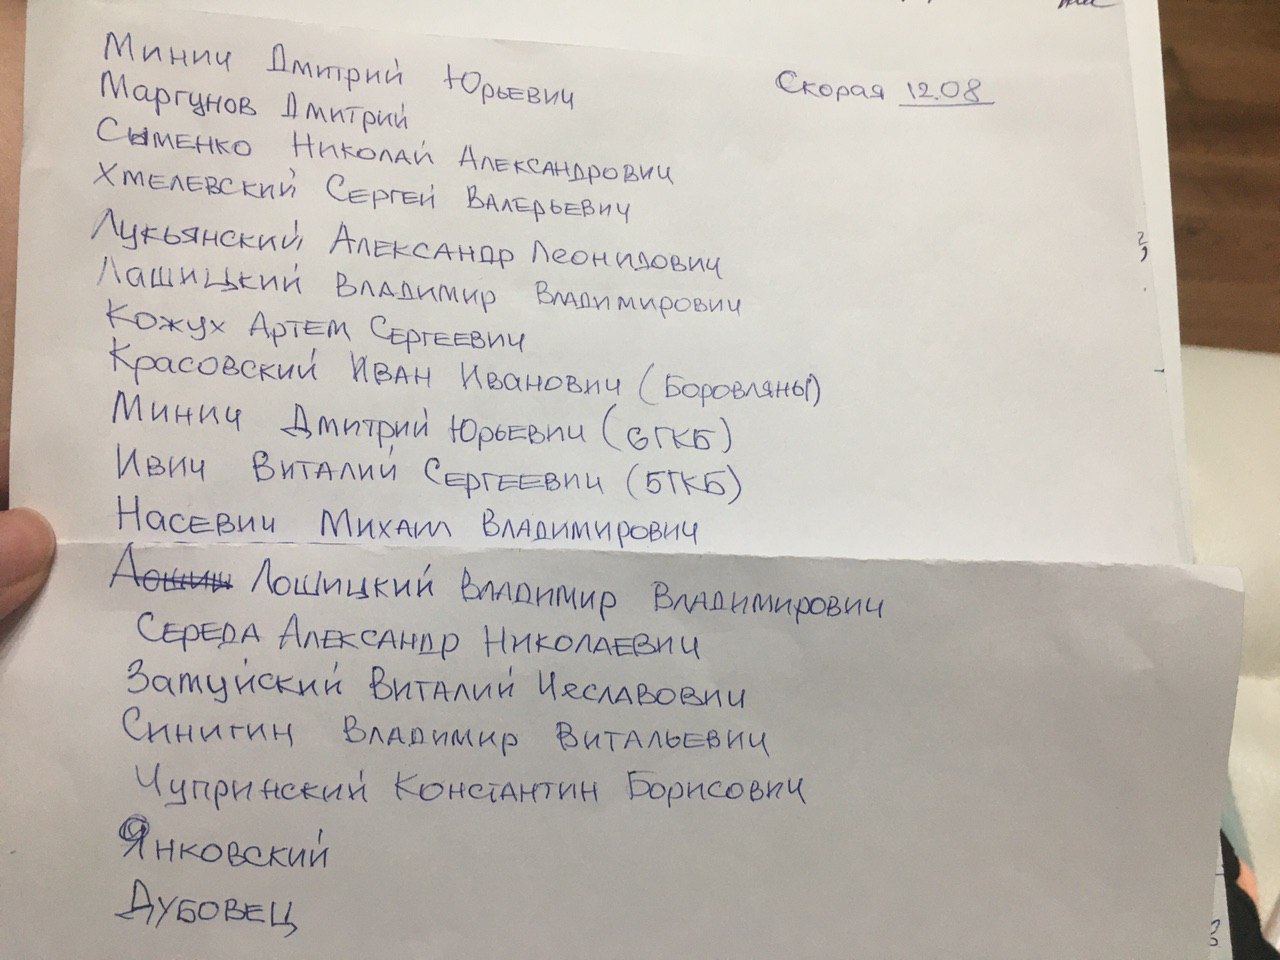 Минич Дмитрий Юрьевич
Скорая 12.08
Маргунов Дмитрий
Сыменко Николай Александрович
Хмелевский Сергей Валерьевич
Лукьянский Александр Леонидович
Лашицкий Владимир Владимирович
Кожух Артем Сергеевич
Красовский Иван Иванович (Боровляны)
Минич Дмитрий Юрьевич (6ГКБ)
Ивич Виталий Сергеевич (5ГКБ)
Насевич Михаил Владимирович
Лошицкий Владимир Владимирович
Середа Александр Николаевич
Затуйский Виталий Чеславович
Синигин Владимир Витальевич
Чупринский Константин Борисович
Янковский
Дубовец